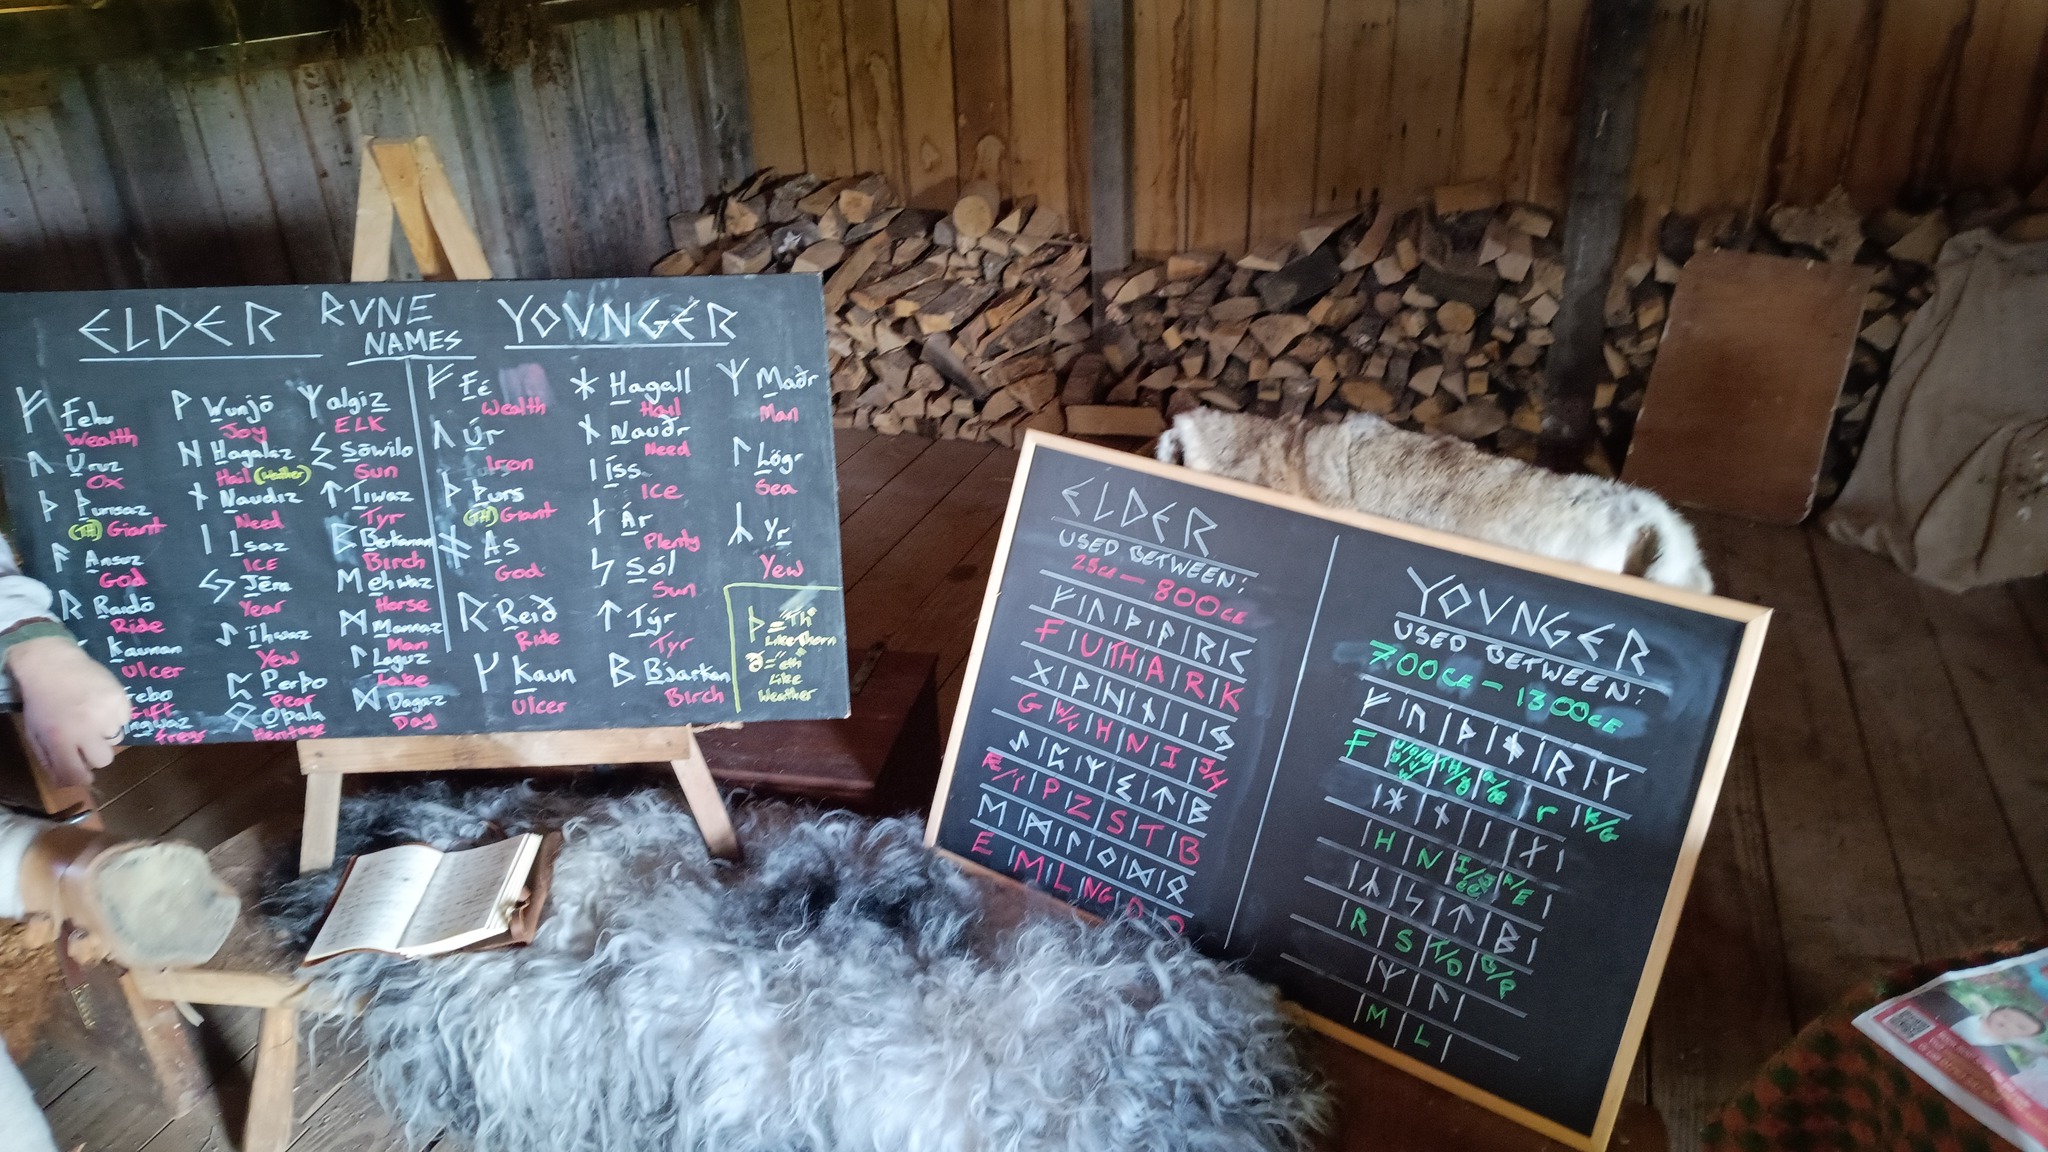 ELDER RVNE NAMES YOVNGER
ᚠ Fehu
Wealth
ᚢ Ūruz
Ox
ᚦ Þurisaz
(TH) Giant
ᚨ Ansuz
God
ᚱ Raidō
Ride
Kaunan
Ulcer
Gift
Freyr
ᚹ Wunjō
Joy
ᚺ Hagalaz
Hail (Weather)
ᚾ Naudiz
Need
ᛁ Isaz
ICE
ᛃ Jēra
Year
ᛇ Ihwaz
Yew
ᛈ Perþo
Pear
ᛟ Oþala
Heritage
ᛉ algiz
ELK
ᛊ Sōwilo
Sun
ᛏ Tiwaz
Tyr
ᛒ Berkanan
Birch
ᛖ ehwaz
Horse
ᛗ Mannaz
Man
ᛚ Laguz
Lake
ᛞ Dagaz
Day
ᚠ Fé
Wealth
ᚢ Úr
Iron
ᚦ Þurs
(TH) Giant
ᚬ As
God
ᚱ Reið
Ride
ᚴ Kaun
Ulcer
ᚼ Hagall
Hail
ᚾ Nauðr
Need
ᛁ Íss
ICE
ᛅ Ár
Plenty
ᛋ Sól
Sun
ᛏ Týr
Tyr
ᛒ Bjarkan
Birch
ᛘ Maðr
Man
ᛚ Lögr
Sea
ᛦ Yr
Yew
Þ = "Th"
Like thorn
ð = "eth"
Like
Weather
ELDER
USED BETWEEN:
800CE
ᚠ|ᚢ|ᚦ|ᚨ|ᚱ|ᚲ
F|U|TH|A|R|K
ᚷ|ᚹ|ᚺ|ᚾ|ᛁ|ᛃ
G|W/V|H|N|I|J/Y
ᛇ|ᛈ|ᛉ|ᛊ|ᛏ|ᛒ
P|Z|S|T|B
ᛖ|ᛗ|ᛚ|ᛜ|ᛞ|ᛟ
E|M|L|NG|D|O
YOVNGER
USED BETWEEN:
700CE – 1300CE
ᚠ|ᚢ|ᚦ|ᚬ|ᚱ|ᚴ
F r|K/G
|ᚼ|ᚾ|ᛁ|ᛅ|
|H|N|A/E|
|ᛦ|ᛋ|ᛏ|ᛒ|
|R|S|T/D|B/P
|ᛘ|ᛚ|
|M|L|